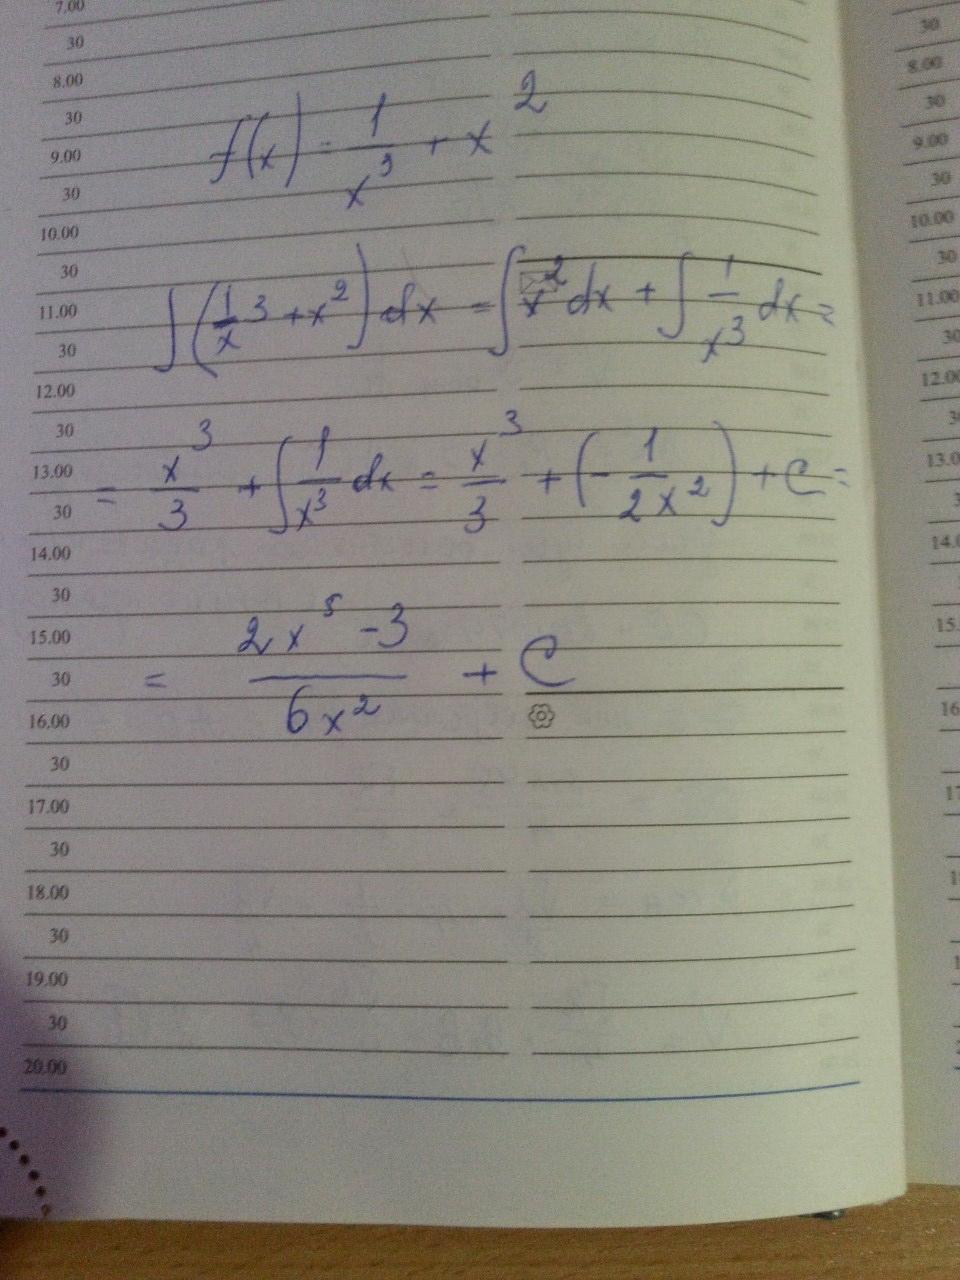 7.00
30
8.00
30
9.00
30
10.00
30
11.00
30
12.00
30
13.00
30
14.00
30
15.00
30
16.00
30
17.00
30
18.00
30
19.00
30
20.00
f(x) = 1/x³ + x²
∫(1/x 3 + x²) dx = ∫x² dx + ∫1/x³ dx =
= x³/3 + ∫1/x³ dx = x³/3 + (-1/2x²) + C =
= 2x⁵ - 3/6x² + C
30
8.00
30
9.00
30
10.00
30
11.00
30
12.00